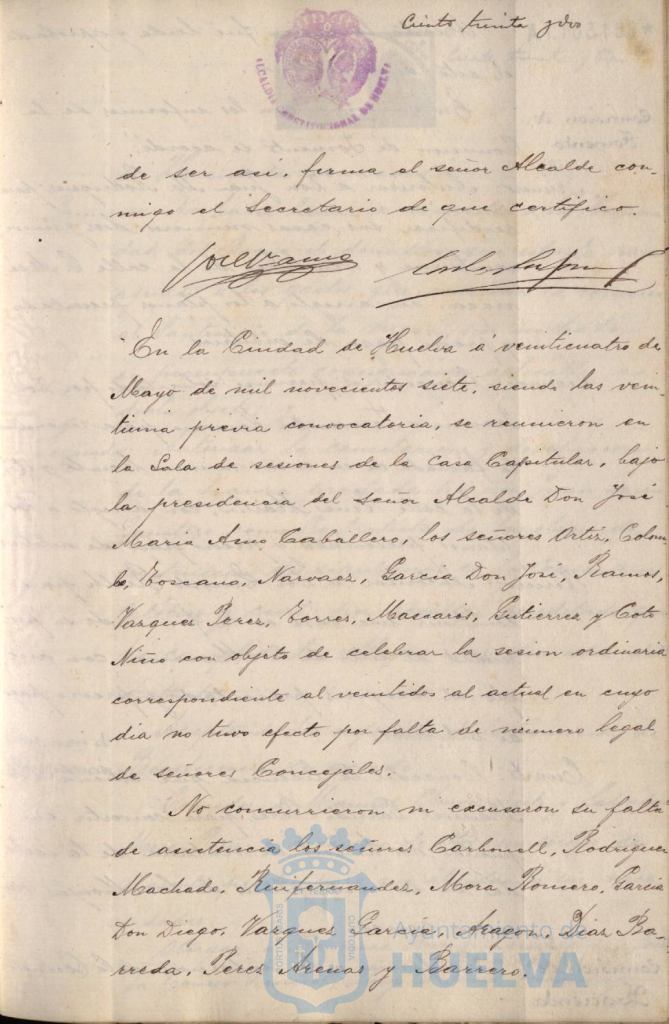 Ciento treinta y dos
ALCALDIA CONSTITUCIONAL DE HUELVA
de ser así, firma el señor Alcalde con-
migo el Secretario de que certifico.
En la Ciudad de Huelva á veinticuatro de
Mayo de mil novecientos siete, siendo las vein-
tiuna previa convocatoria, se reunieron en
la Sala de sesiones de la Casa Capitular, bajo
la presidencia del señor Alcalde Don José
Maria Amo Caballero, los señores Ortiz, Colom-
bo, Toscano, Narvaez, Garcia Don José, Ramos,
Vazquez Perez, Torres, Mascarós, Gutierrez y Coto
Niño con objeto de celebrar la sesion ordinaria
correspondiente al veintidos al actual en cuyo
dia no tuvo efecto por falta de número legal
de señores Concejales.
No concurrieron ni excusaron su falta
de asistencia los señores Carbonell, Rodriguez
Machado, Ruifernandez, Mora Romero, Garcia
Don Diego, Vazquez Garcia, Aragon, Diaz Ba-
rreda, Perez Arenas y Barrero.
Ayuntamiento de
HUELVA